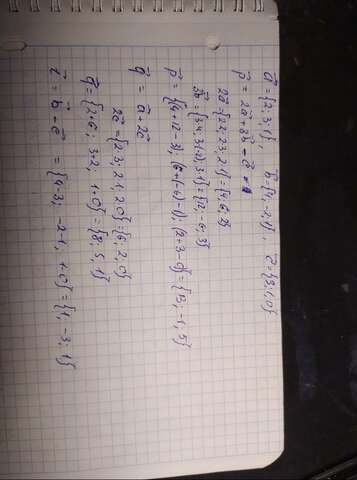 a⃗ = {2; 3; 1}, b⃗ {4; -2; 1}, c⃗ = {3; 1; 0}
p⃗ = 2a⃗ + 3b⃗ - c⃗
2a⃗ = {2·2; 2·3; 2·1} = {4; 6; 2}
3b⃗ = {3·4; 3·(-2); 3·1} = {12; -6; 3}
p⃗ = {(4+12-3); (6+(-6)-1); (2+3-0)} = {13; -1; 5}
q⃗ = a⃗ + 2c⃗
2c⃗ = {2·3; 2·1; 2·0} = {6; 2; 0}
q⃗ = {2+6; 3+2; 1+0} = {8; 5; 1}
= b⃗ - c⃗ = {4-3; -2-1; 1+0} = {1; -3; 1}